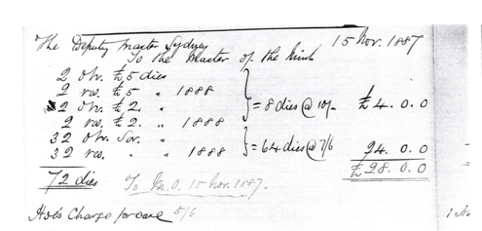 The Deputy Master Sydney 15 Nov. 1887
To the Master of the Mint
2 obv. £5 dies
2 rev. £5 " 1888
2 obv. £2. "
2 rev. £2. " 1888 } = 8 dies @ 10/- £4. 0. 0
32 obv. Sov. "
32 rev. " " 1888 } = 64 dies @ 7/6 24. 0. 0
72 dies To M.O. 15 Nov. 1887. £28. 0. 0
Charge for case 5/6